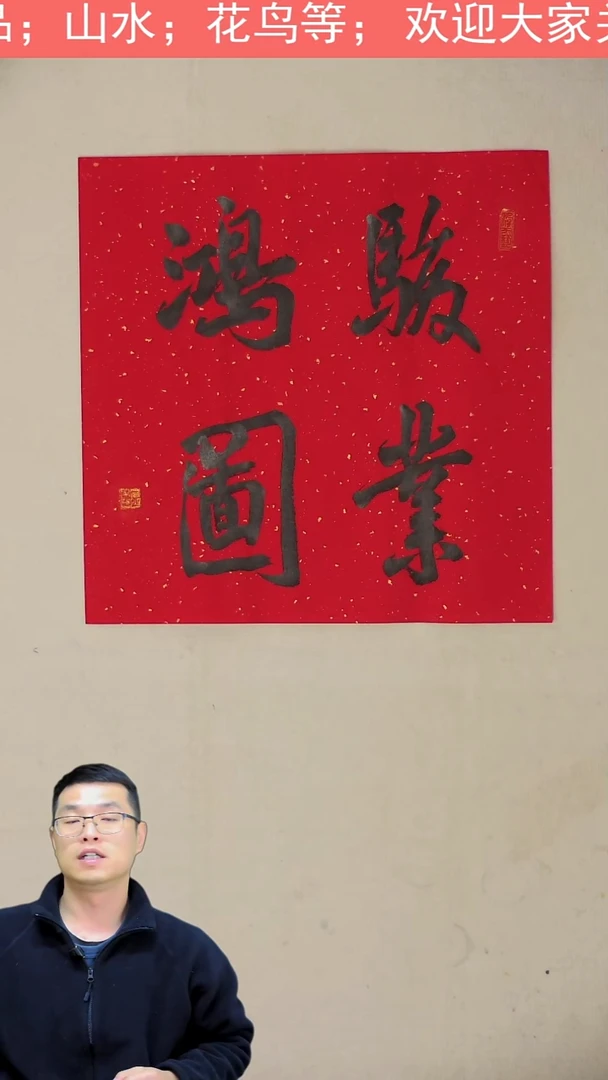 品；山水；花鸟等；欢迎大家关
駿業
鴻圖